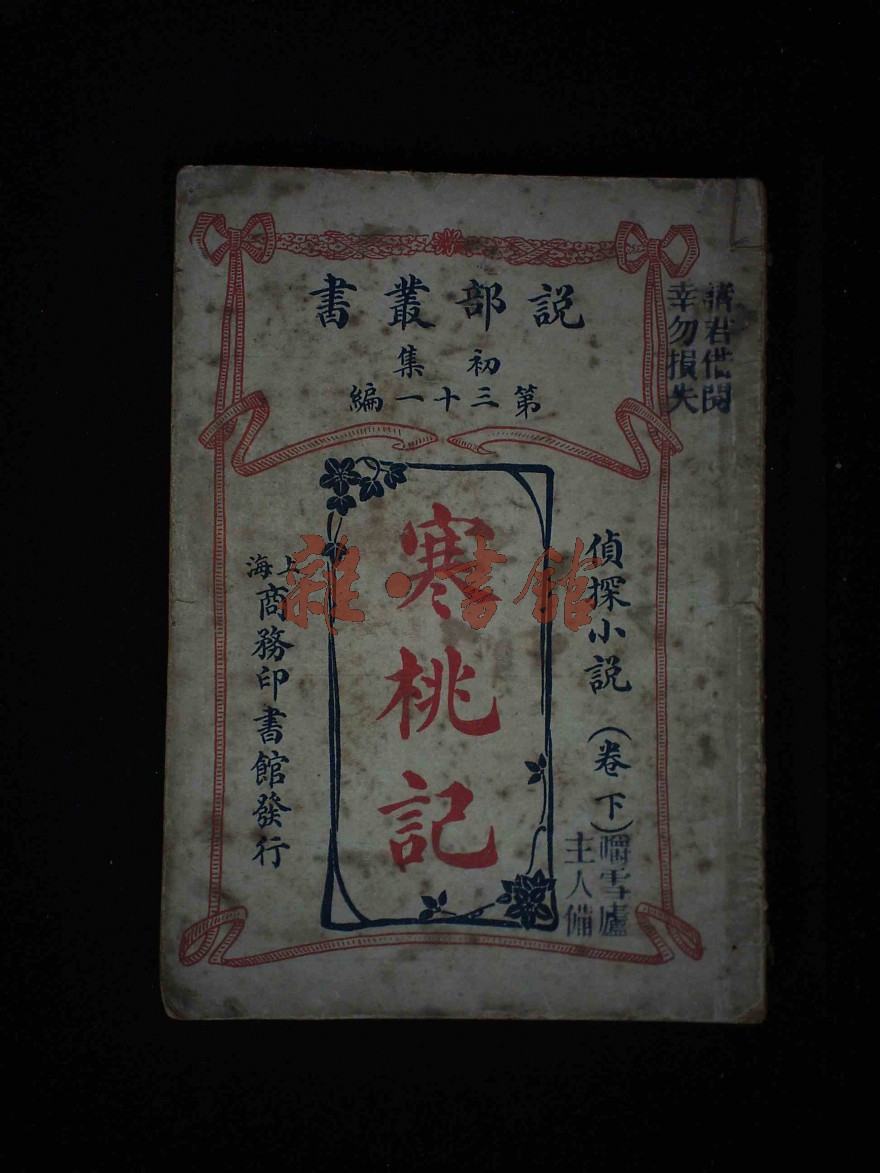 説部叢書
初集
第三十一編
諸君借閱
幸勿損失
偵探小説（卷下）
嚼雪廬
主人備
寒桃記
上海
商務印書館發行
雜·書館